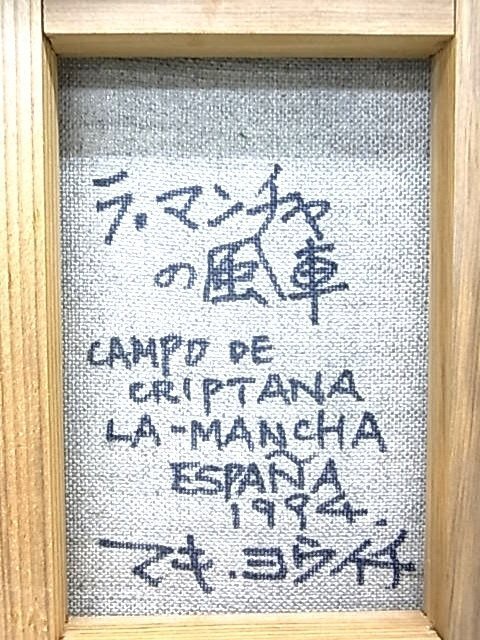 ラ・マンチャ
の風車
CAMPO DE
CRIPTANA
LA-MANCHA
ESPAÑA
1994.
マキ.ヨウ